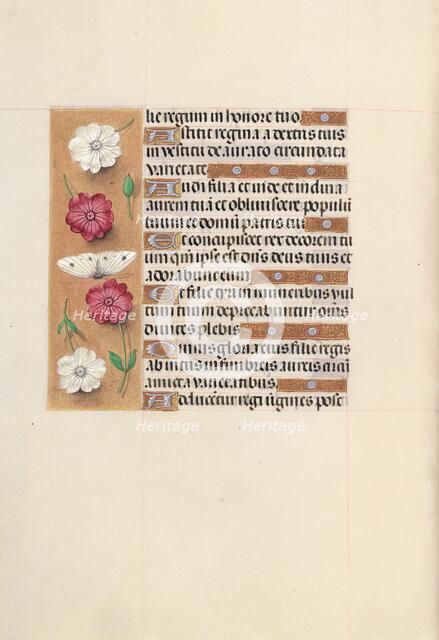 lie regum in honore tuo
Astitit regina a dextris tuis
in vestitu deaurato circundata
varietate
Audi filia et vide et inclina
aurem tuam et obliviscere populum
tuum et domum patris tui
Et concupiscet rex decorem tu
um qm ipse est dns deus tuus et
adorabunt eum
Et filie tyri in muneribus vul
tum tuum deprecabuntur omnes
divites plebis
Omnis gloria eius filie regis
ab intus in fimbreis aureis circu
amicta varietatibus
Adducentur regi virgines post
Heritage Heritage
Heritage Heritage